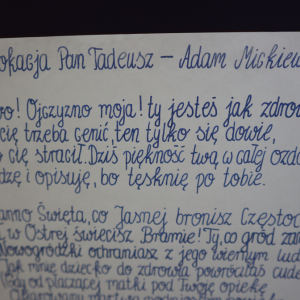 okacja Pan Tadeusz – Adam Mickiew
o! Ojczyzno moja! ty jesteś jak zdrow
cię trzeba cenić, ten tylko się dowie,
cię stracił. Dziś piękność twą w całej ozdo
dzę i opisuję, bo tęsknię po tobie.
anno Święta, co Jasnej bronisz Częstoc
i w Ostrej świecisz Bramie! Ty, co gród zam
Nowogródzki ochraniasz z jego wiernym lud
Jak mnie dziecko do zdrowia powróciłaś cude
dy od płaczącej matki pod Twoją opiekę